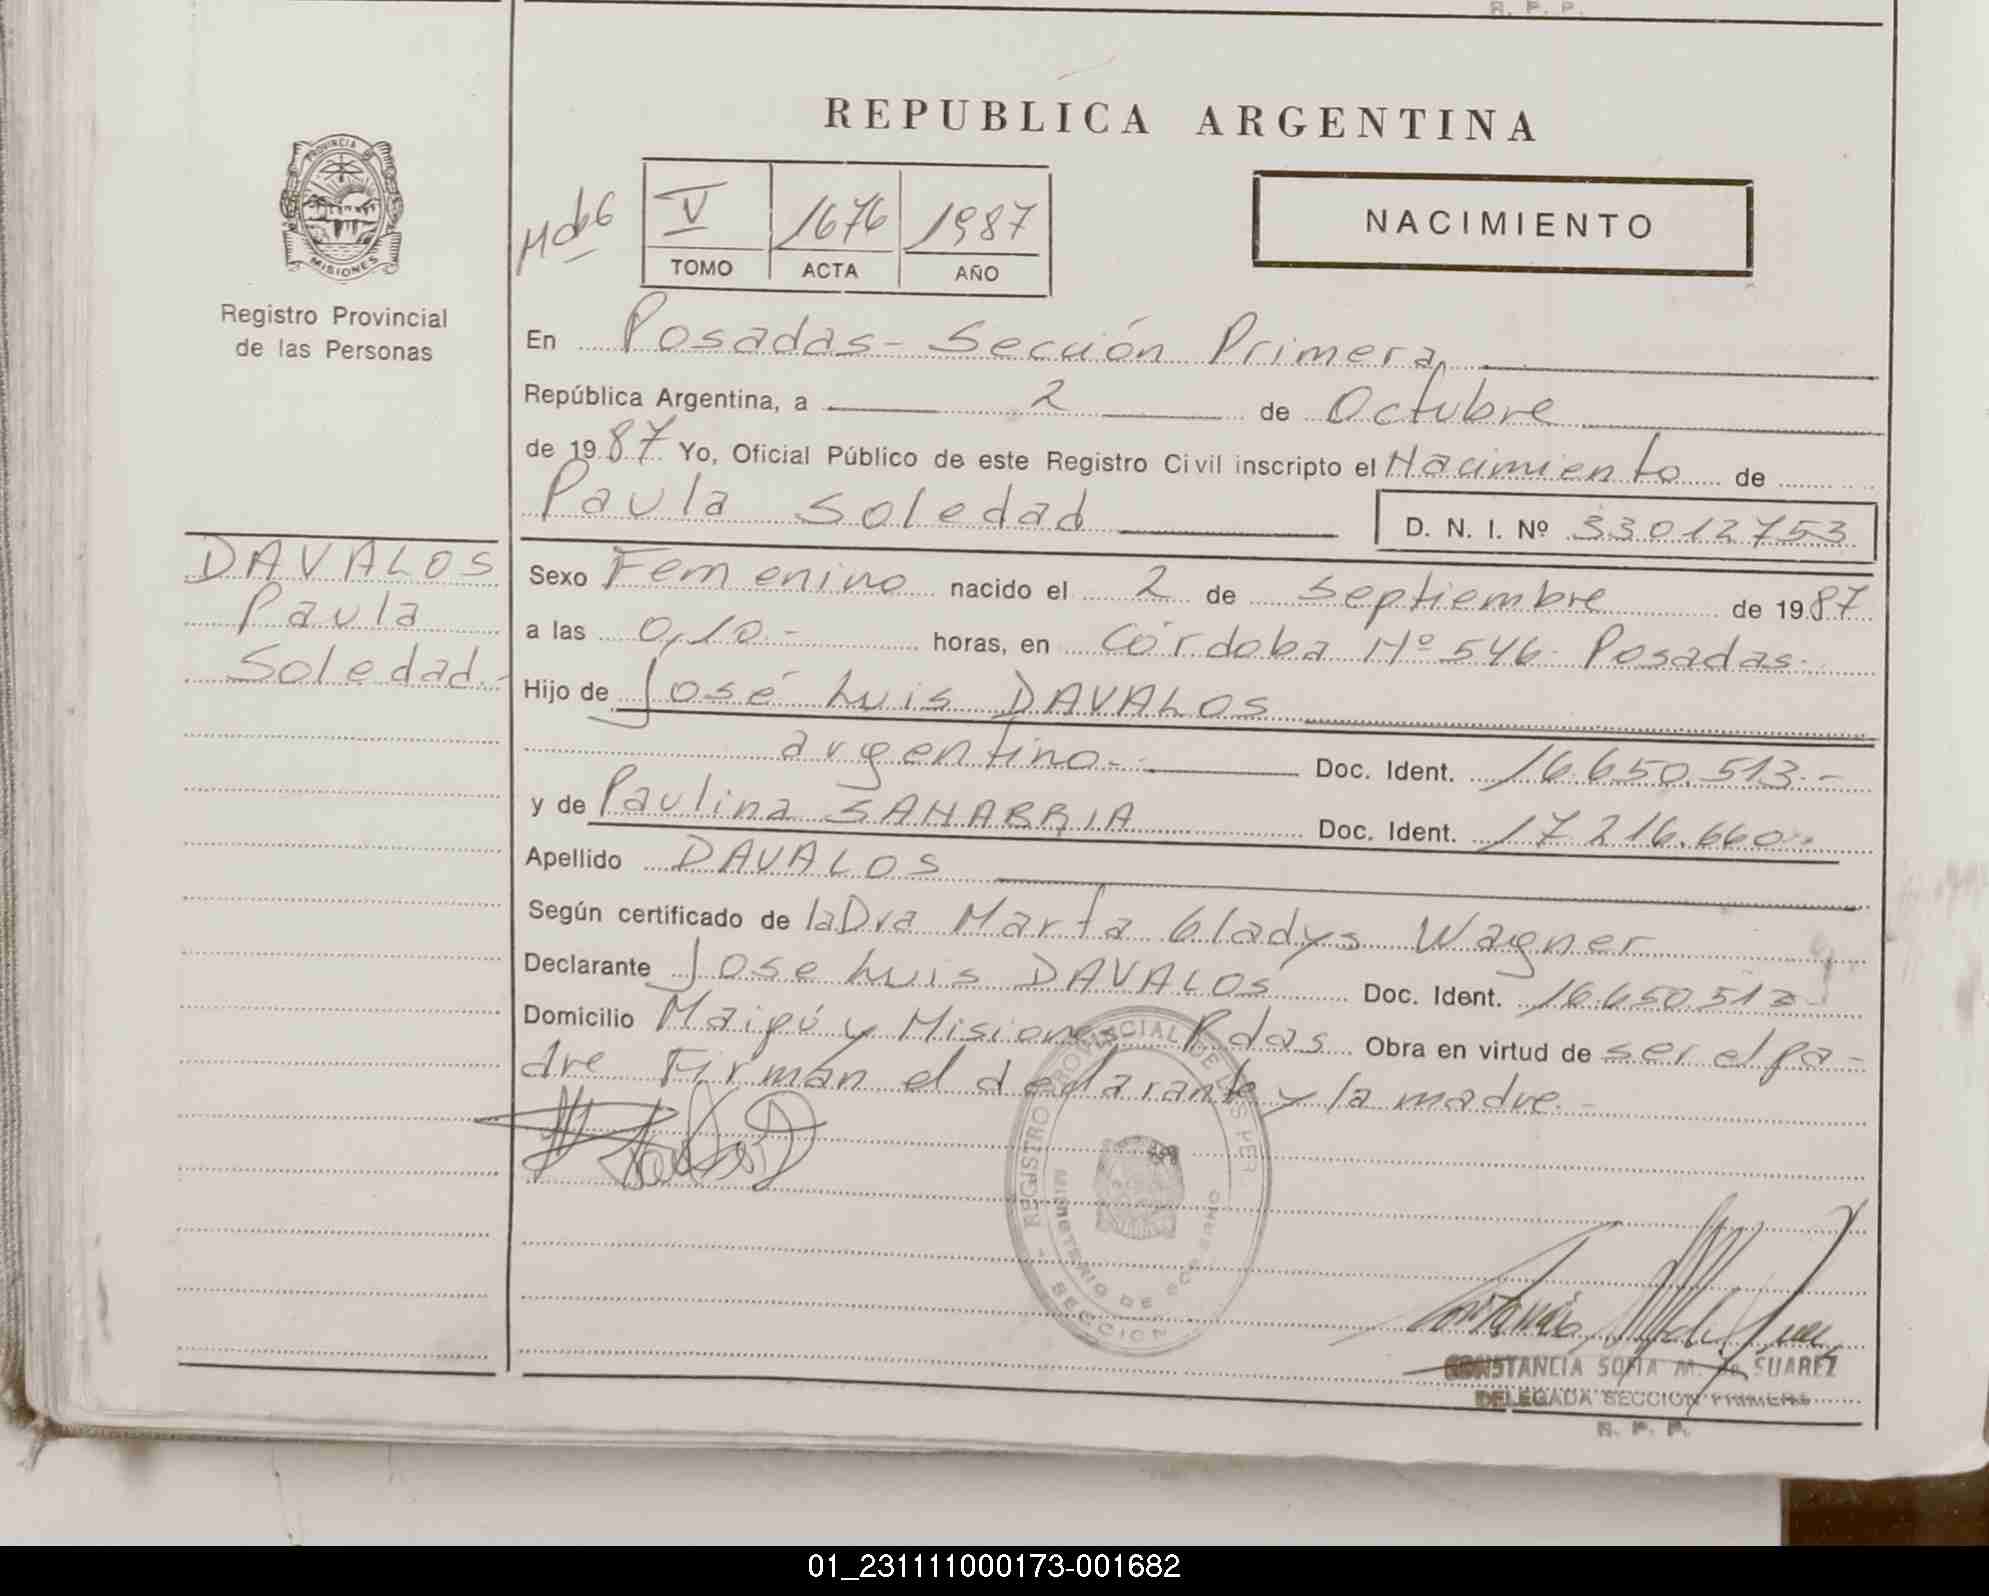 R. P. P.
REPUBLICA ARGENTINA
PROVINCIA DE
MISIONES
Registro Provincial
de las Personas
V 1676 1987
TOMO ACTA AÑO
NACIMIENTO
En Posadas - Sección Primera
República Argentina, a 2 de Octubre
de 1987 Yo, Oficial Público de este Registro Civil inscripto el Nacimiento de
Paula Soledad D. N. I. Nº 33012753
DAVALOS
Paula
Soledad.-
Sexo Femenino nacido el 2 de Septiembre de 1987
a las 0,10.- horas, en Córdoba Nº 546- Posadas.
Hijo de José Luis DAVALOS
argentino.- Doc. Ident. 16.650.513.-
y de Paulina SANABRIA Doc. Ident. 17.216.660.-
Apellido DAVALOS
Según certificado de la Dra Marta Gladys Wagner
Declarante José Luis DAVALOS Doc. Ident. 16.650.513
Domicilio Maipú y Misiones Pdas Obra en virtud de ser el pa-
dre Firman el declarante y la madre.-
REGISTRO PROVINCIAL DE LAS PER
MINISTERIO DE GOBIERNO
SECCION
CONSTANCIA SOFIA M. de SUAREZ
DELEGADA SECCION PRIMERA
R. P. P.
01_231111000173-001682